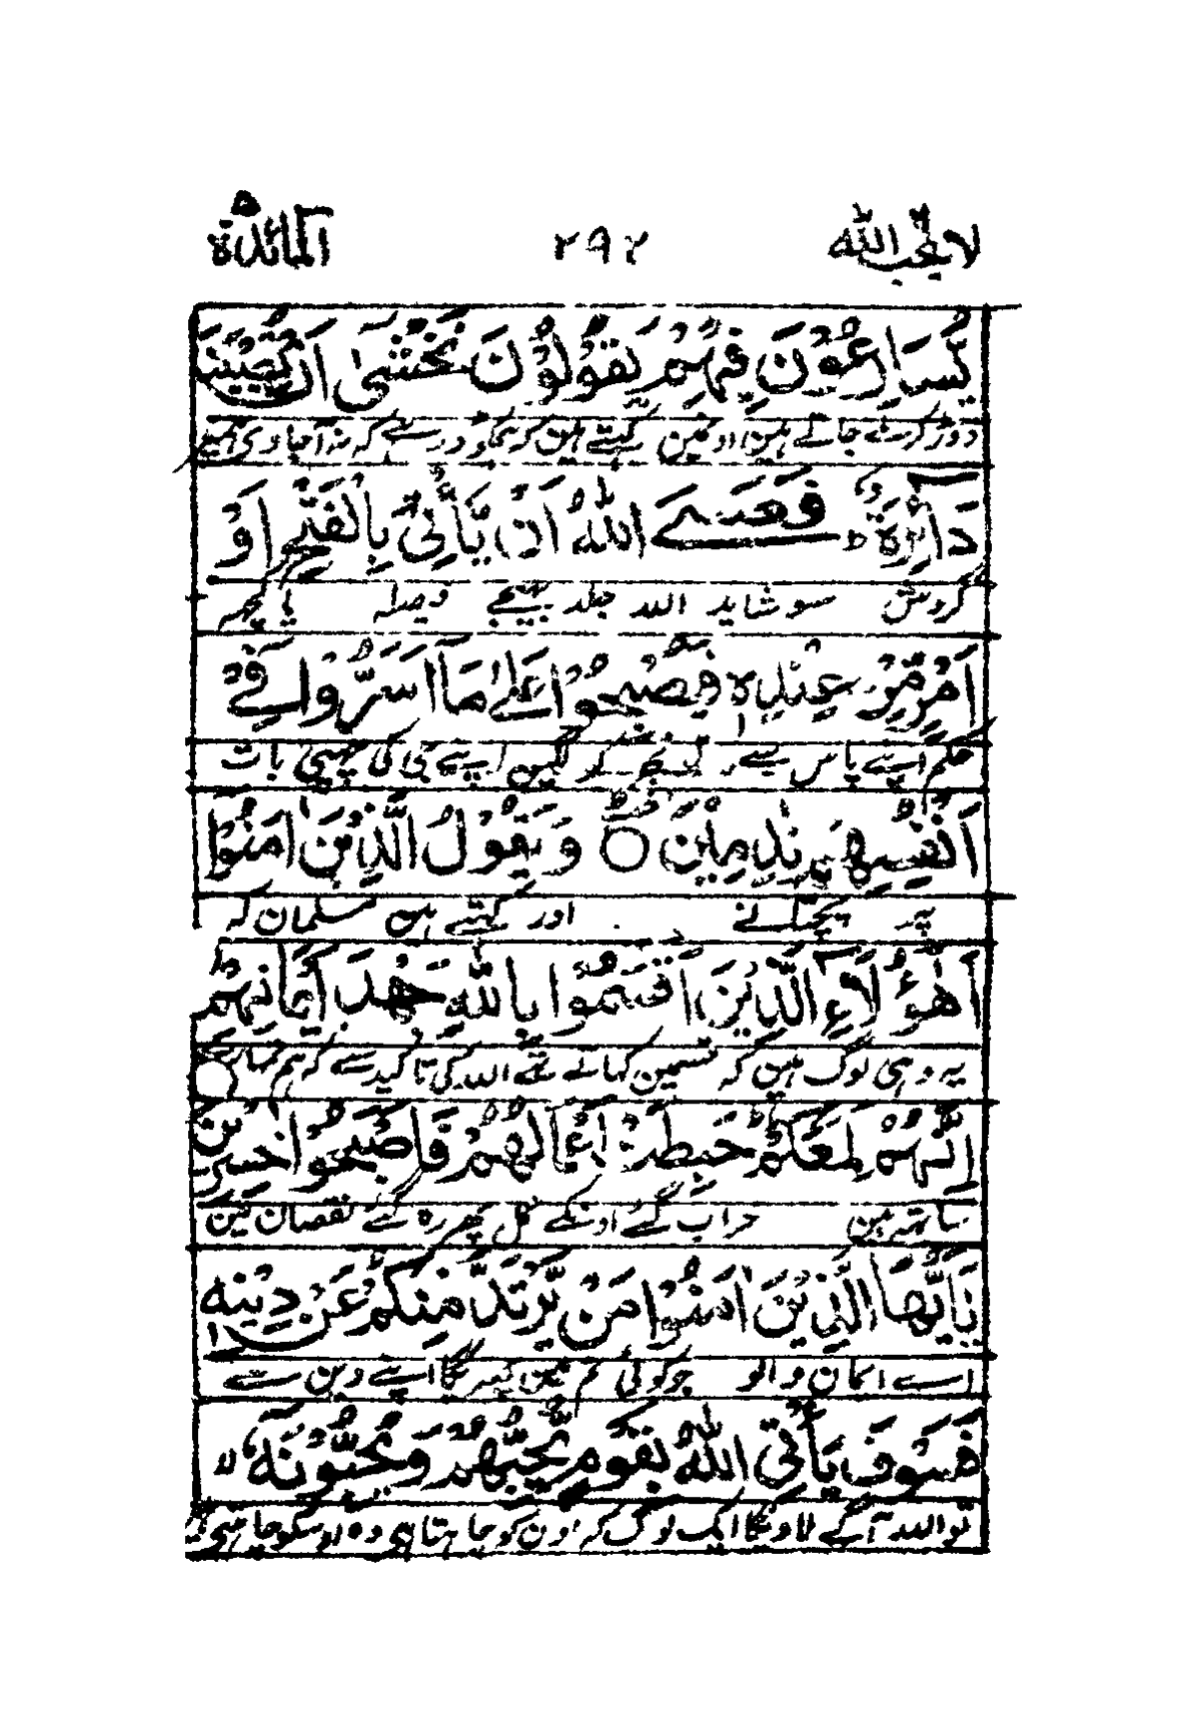 لا يحب الله ٢٩٢ المائدة ٥
يُّسَارِعُوْنَ فِيْهِمْ يَقُوْلُوْنَ نَخْشٰٓى اَنْ تُصِيْبَنَا
دوڑ کر ملے جاتے ہین اونمین کہتے ہین کہ ہمکو ڈر ہے کہ نہ آجاوی ہمپر
دَآئِرَةٌ ؕ فَعَسَى اللّٰهُ اَنْ يَّأْتِىَ بِالْفَتْحِ اَوْ
گردش سو شاید اللہ جلد بھیجے فیصلہ یا کچھ
اَمْرٍ مِّنْ عِنْدِهٖ فَيُصْبِحُوْا عَلٰى مَاۤ اَسَرُّوْا فِىْ
حکم اپنے پاس سے لگین اپنے جی کی چھپی بات
اَنْفُسِهِمْ نٰدِمِيْنَ ○ وَيَقُوْلُ الَّذِيْنَ اٰمَنُوْۤا
پر پچتانے اور کہتے ہین مسلمان کہ
اَهٰٓؤُلَآءِ الَّذِيْنَ اَقْسَمُوْا بِاللّٰهِ جَهْدَ اَيْمَانِهِمْ
یہ وہی لوگ ہین کہ قسمین کھاتے تھے اللہ کی تاکید سے کہ ہم تمہارے
اِنَّهُمْ لَمَعَكُمْ حَبِطَتْ اَعْمَالُهُمْ فَاَصْبَحُوْا خٰسِرِيْنَ
ساتھ ہین خراب گئے اونکے عمل پھر رہ گئے نقصان مین
يٰۤاَيُّهَا الَّذِيْنَ اٰمَنُوْا مَنْ يَّرْتَدَّ مِنْكُمْ عَنْ دِيْنِهٖ
اے ایمان والو جو کوئی تم مین پھریگا اپنے دین سے
فَسَوْفَ يَأْتِى اللّٰهُ بِقَوْمٍ يُّحِبُّهُمْ وَيُحِبُّوْنَهٗۤ ۙ لا
تو اللہ آگے لاویگا ایک لوگ کہ اون کو چاہتا ہی وہ اوسکو چاہتے